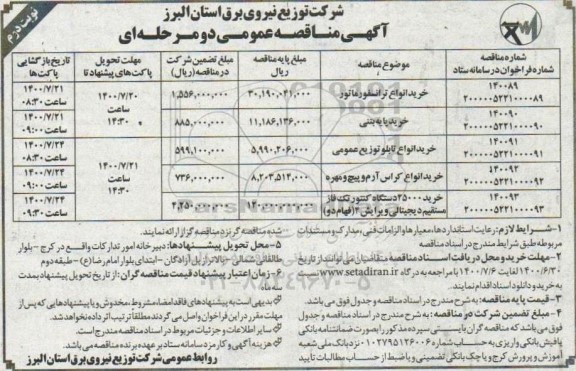 نوبت دوم
شرکت توزیع نیروی برق استان البرز
آگهی مناقصه عمومی دو مرحله‌ای
شماره مناقصه
شماره فراخوان در سامانه ستاد
موضوع مناقصه
مبلغ پایه مناقصه
ریال
مبلغ تضمین شرکت
در مناقصه (ریال)
مهلت تحویل
پاکت های پیشنهاد تا
تاریخ بازگشایی
پاکت ها
۱۴۰۰۸۹
۲۰۰۰۰۰۵۲۲۱۰۰۰۰۸۹
خرید انواع ترانسفورماتور
۳۰,۱۹۰,۰۲۱,۰۰۰
۱,۵۵۶,۰۰۰,۰۰۰
۱۴۰۰/۷/۲۰
ساعت
۱۴:۳۰
۱۴۰۰/۷/۲۱
ساعت ۰۸:۳۰
۱۴۰۰۹۰
۲۰۰۰۰۰۵۲۲۱۰۰۰۰۹۰
خرید پایه بتنی
۱۱,۱۸۶,۱۳۶,۰۰۰
۸۸۵,۰۰۰,۰۰۰
۱۴۰۰/۷/۲۱
ساعت ۰۹:۰۰
۱۴۰۰۹۱
۲۰۰۰۰۰۵۲۲۱۰۰۰۰۹۱
خرید انواع تابلو توزیع عمومی
۵,۹۹۰,۲۰۶,۰۰۰
۵۹۹,۱۰۰,۰۰۰
۱۴۰۰/۷/۲۱
ساعت
۱۴:۳۰
۱۴۰۰/۷/۲۴
ساعت ۰۸:۳۰
۱۴۰۰۹۲
۲۰۰۰۰۰۵۲۲۱۰۰۰۰۹۲
خرید انواع کراس آرم و پیچ و مهره
۸,۲۰۳,۵۱۴,۰۰۰
۷۳۶,۰۰۰,۰۰۰
۱۴۰۰/۷/۲۴
ساعت ۰۹:۰۰
۱۴۰۰۹۳
۲۰۰۰۰۰۵۲۲۱۰۰۰۰۹۳
خرید ۲۵۰۰۰ دستگاه کنتور تک فاز
مستقیم دیجیتالی ویرایش ۳ (فهام دو)
۱۴۰۰/۷/۲۴
۱- شرایط لازم: رعایت استانداردها، معیارها و الزامات فنی، مدارک و مستندات
مربوطه طبق شرایط مندرج در اسناد مناقصه
۲- مهلت خرید و محل دریافت اسناد مناقصه: متقاضیان می توانند از تاریخ
۱۴۰۰/۶/۳۰ لغایت ۱۴۰۰/۷/۶ با مراجعه به درگاه www.setadiran.ir نسبت
به خرید و دانلود اسناد اقدام نمایند.
۳- قیمت پایه مناقصه: به شرح مندرج در اسناد مناقصه و جدول فوق می باشد.
۴- مبلغ تضمین شرکت در مناقصه: به شرح مندرج در اسناد مناقصه و جدول
فوق می باشد که مناقصه گران بایستی سپرده مذکور را بصورت ضمانتنامه بانکی
یا فیش بانکی واریزی به حساب شماره ۱۰۲۷۹۵۱۲۶۰۰۶ نزد بانک ملی شعبه
آموزش و پرورش کرج و یا چک بانکی تضمینی و یا ضبط از حساب مطالبات تأیید
شده مناقصه گر نزد مناقصه گزار ارائه نمایند.
۵- محل تحویل پیشنهادها: دبیرخانه امور تدارکات واقع در کرج - بلوار
طالقانی شمالی - بالاتر از پل آزادگان - ابتدای بلوار امام رضا (ع) - طبقه دوم
۶- زمان اعتبار پیشنهاد قیمت مناقصه گران: از تاریخ تحویل پیشنهاد بمدت
بدیهی است به پیشنهادهای فاقد امضاء، مشروط، مخدوش و یا پیشنهادهایی که پس از
مهلت مقرر در این فراخوان واصل می گردند مطلقا ترتیب اثر داده نخواهد شد.
سایر اطلاعات و جزئیات مربوط در اسناد مناقصه مندرج است.
هزینه آگهی و کارمزد سامانه ستاد بر عهده برنده مناقصه می باشد.
روابط عمومی شرکت توزیع نیروی برق استان البرز